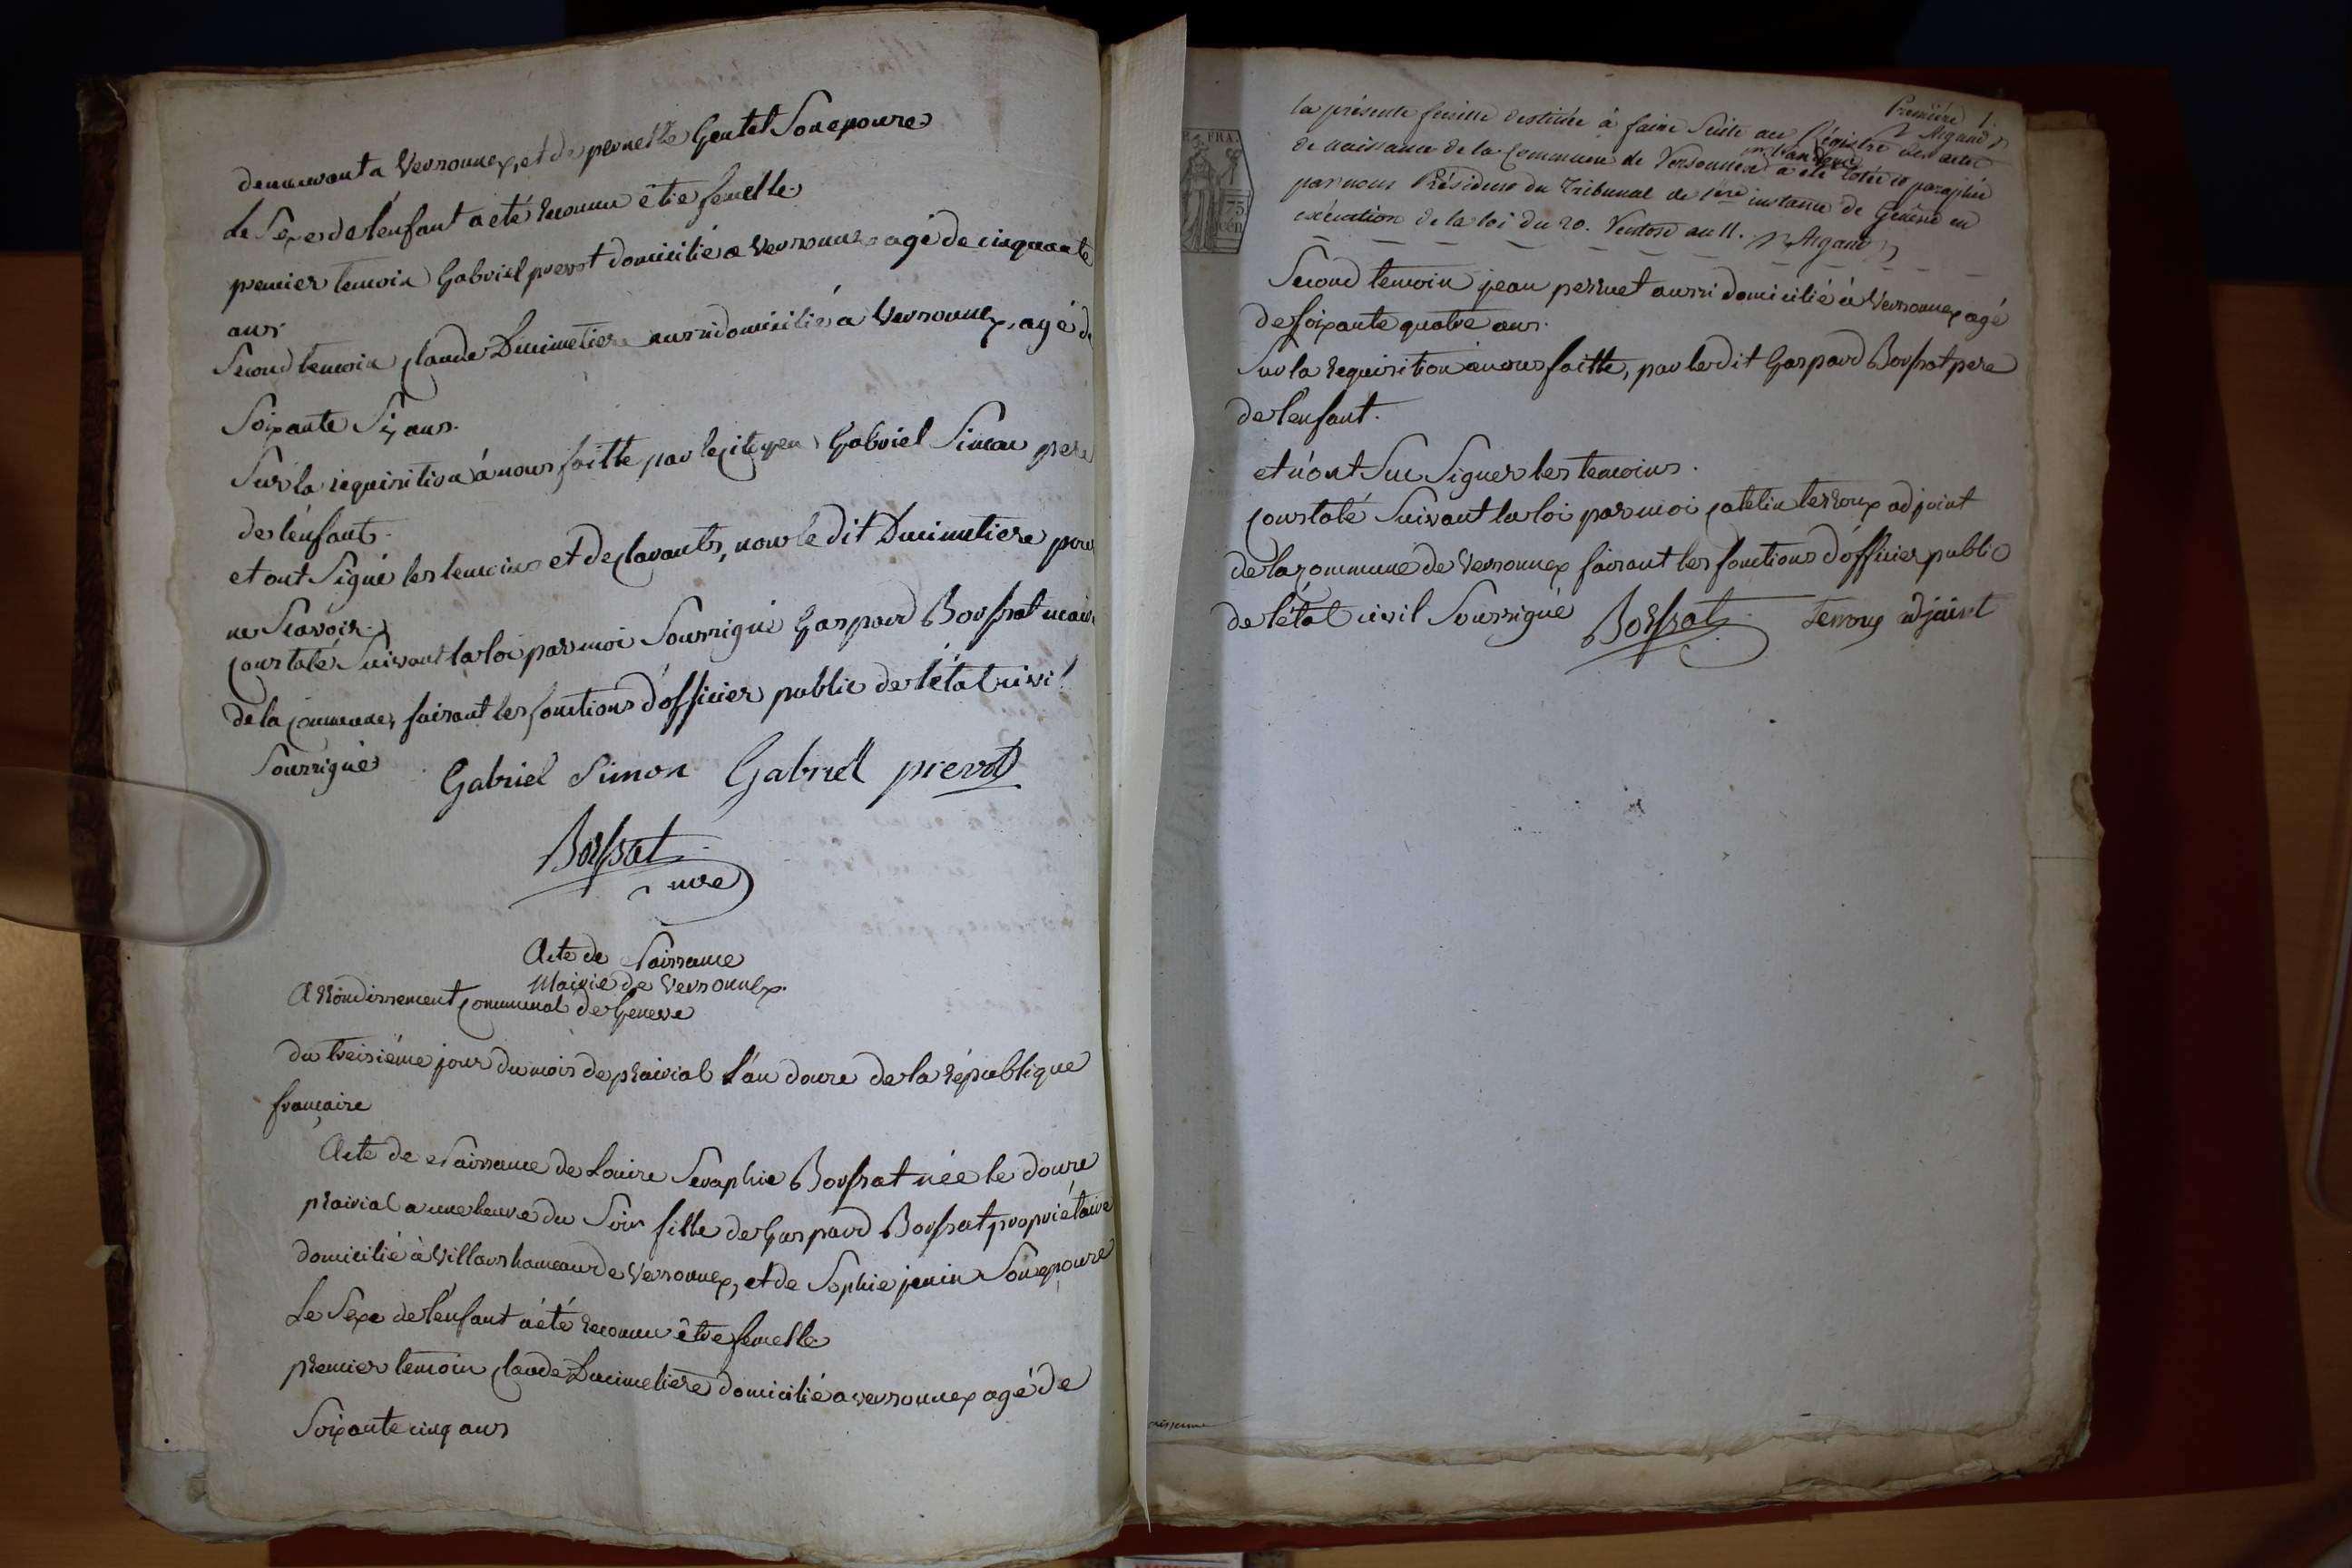 demeurant a Versonnex, et de pernette Gentet Son epouze
Le Sexe de l'enfant a eté Reconnu être femelle
premier temoin Gabriel prevot domicilié a Versonnex agé de cinquante
ans
Second temoin Claude Ducimetiere aussi domicilié a Versonnex, agé de
Soixante Six ans.
Sur la requisition à nous faitte par le citoyen Gabriel Simon pere
de l'enfant.
et ont Signé les temoins et declarants, non le dit Ducimetiere pour
ne Scavoir.
Constaté Suivant la loi par moi Soussigné Gaspard Bossat maire
de la Commune, faisant les fonctions d'officier public de l'état civil
Soussigné
Gabriel Simon Gabriel prevot
Bossat
mre
Acte de Naissance
Mairie de Versonnex.
Arrondissement Communal de Geneve
du treisiéme jour du mois de prairial l'an douze de la république
françaize
Acte de Naissance de Louize Seraphie Bossat née le douze
prairial a une heure du Soir fille de Gaspard Bossat propriétaire
domicilié à Villard hameau de Versonnex, et de Sophie jenin Son epouze
Le Sexe de l'enfant a été Reconnu être femelle
premier temoin Claude Ducimetiere domicilié a versonnex agé de
Soixante cinq ans
Première 1.
Argand
la présente feuille destinée à faire Suite au Régistre des actes
de naissance de la Commune de Versonnex pr l'an douze a été cotée et paraphée
par nous Président du Tribunal de 1ère instance de Genève en
exécution de la loi du 20. Ventose an 11. Argand
FRA.
75
CEN
Second temoin jean perruet aussi domicilié à Versonnex agé
de Soixante quatre ans.
Sur la requisition à nous faitte, par le dit Gaspard Bossat pere
de l'enfant.
et n'ont Su Signer les temoins.
Constaté Suivant la loi par moi Catelin terroux adjoint
de la Commune de Versonnex faisant les fonctions d'officier public
de l'état civil Soussigné Bossat terroux adjoint